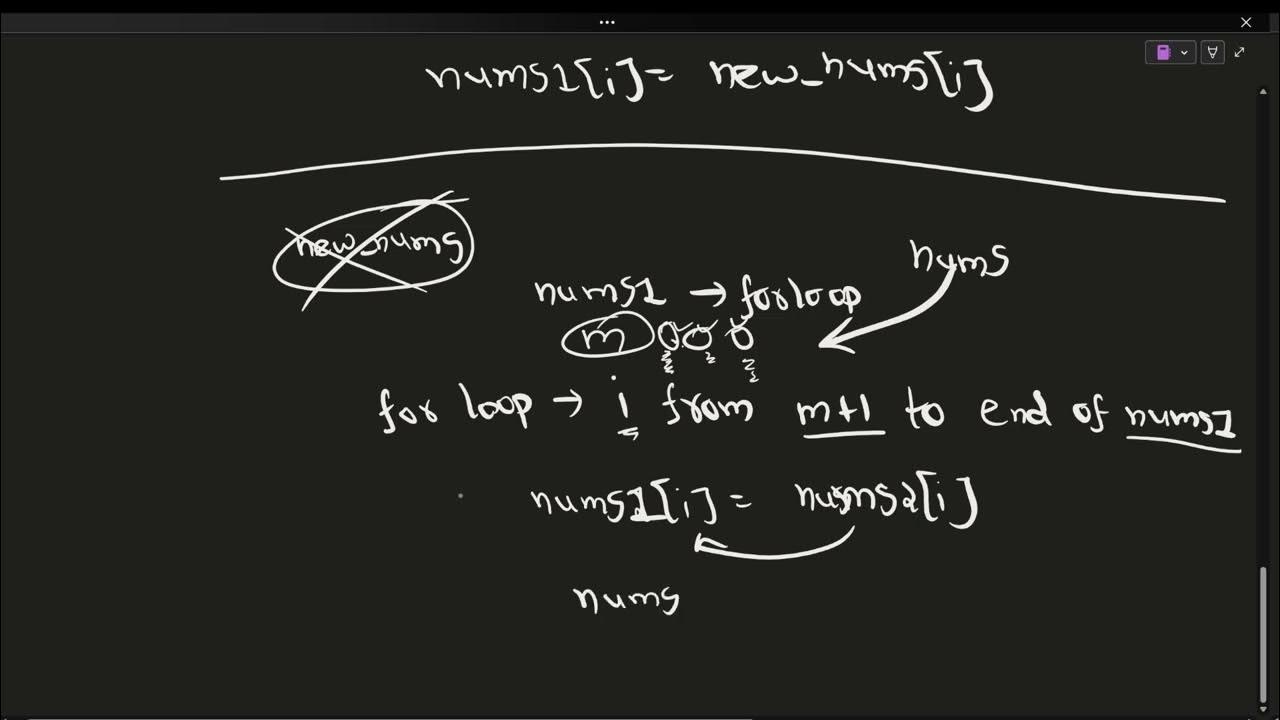 nums1[i] = new_nums[i]
new_nums
nums
nums1 → for loop
m 0 0 0
for loop → i from m+1 to end of nums1
nums1[i] = nums2[i]
nums